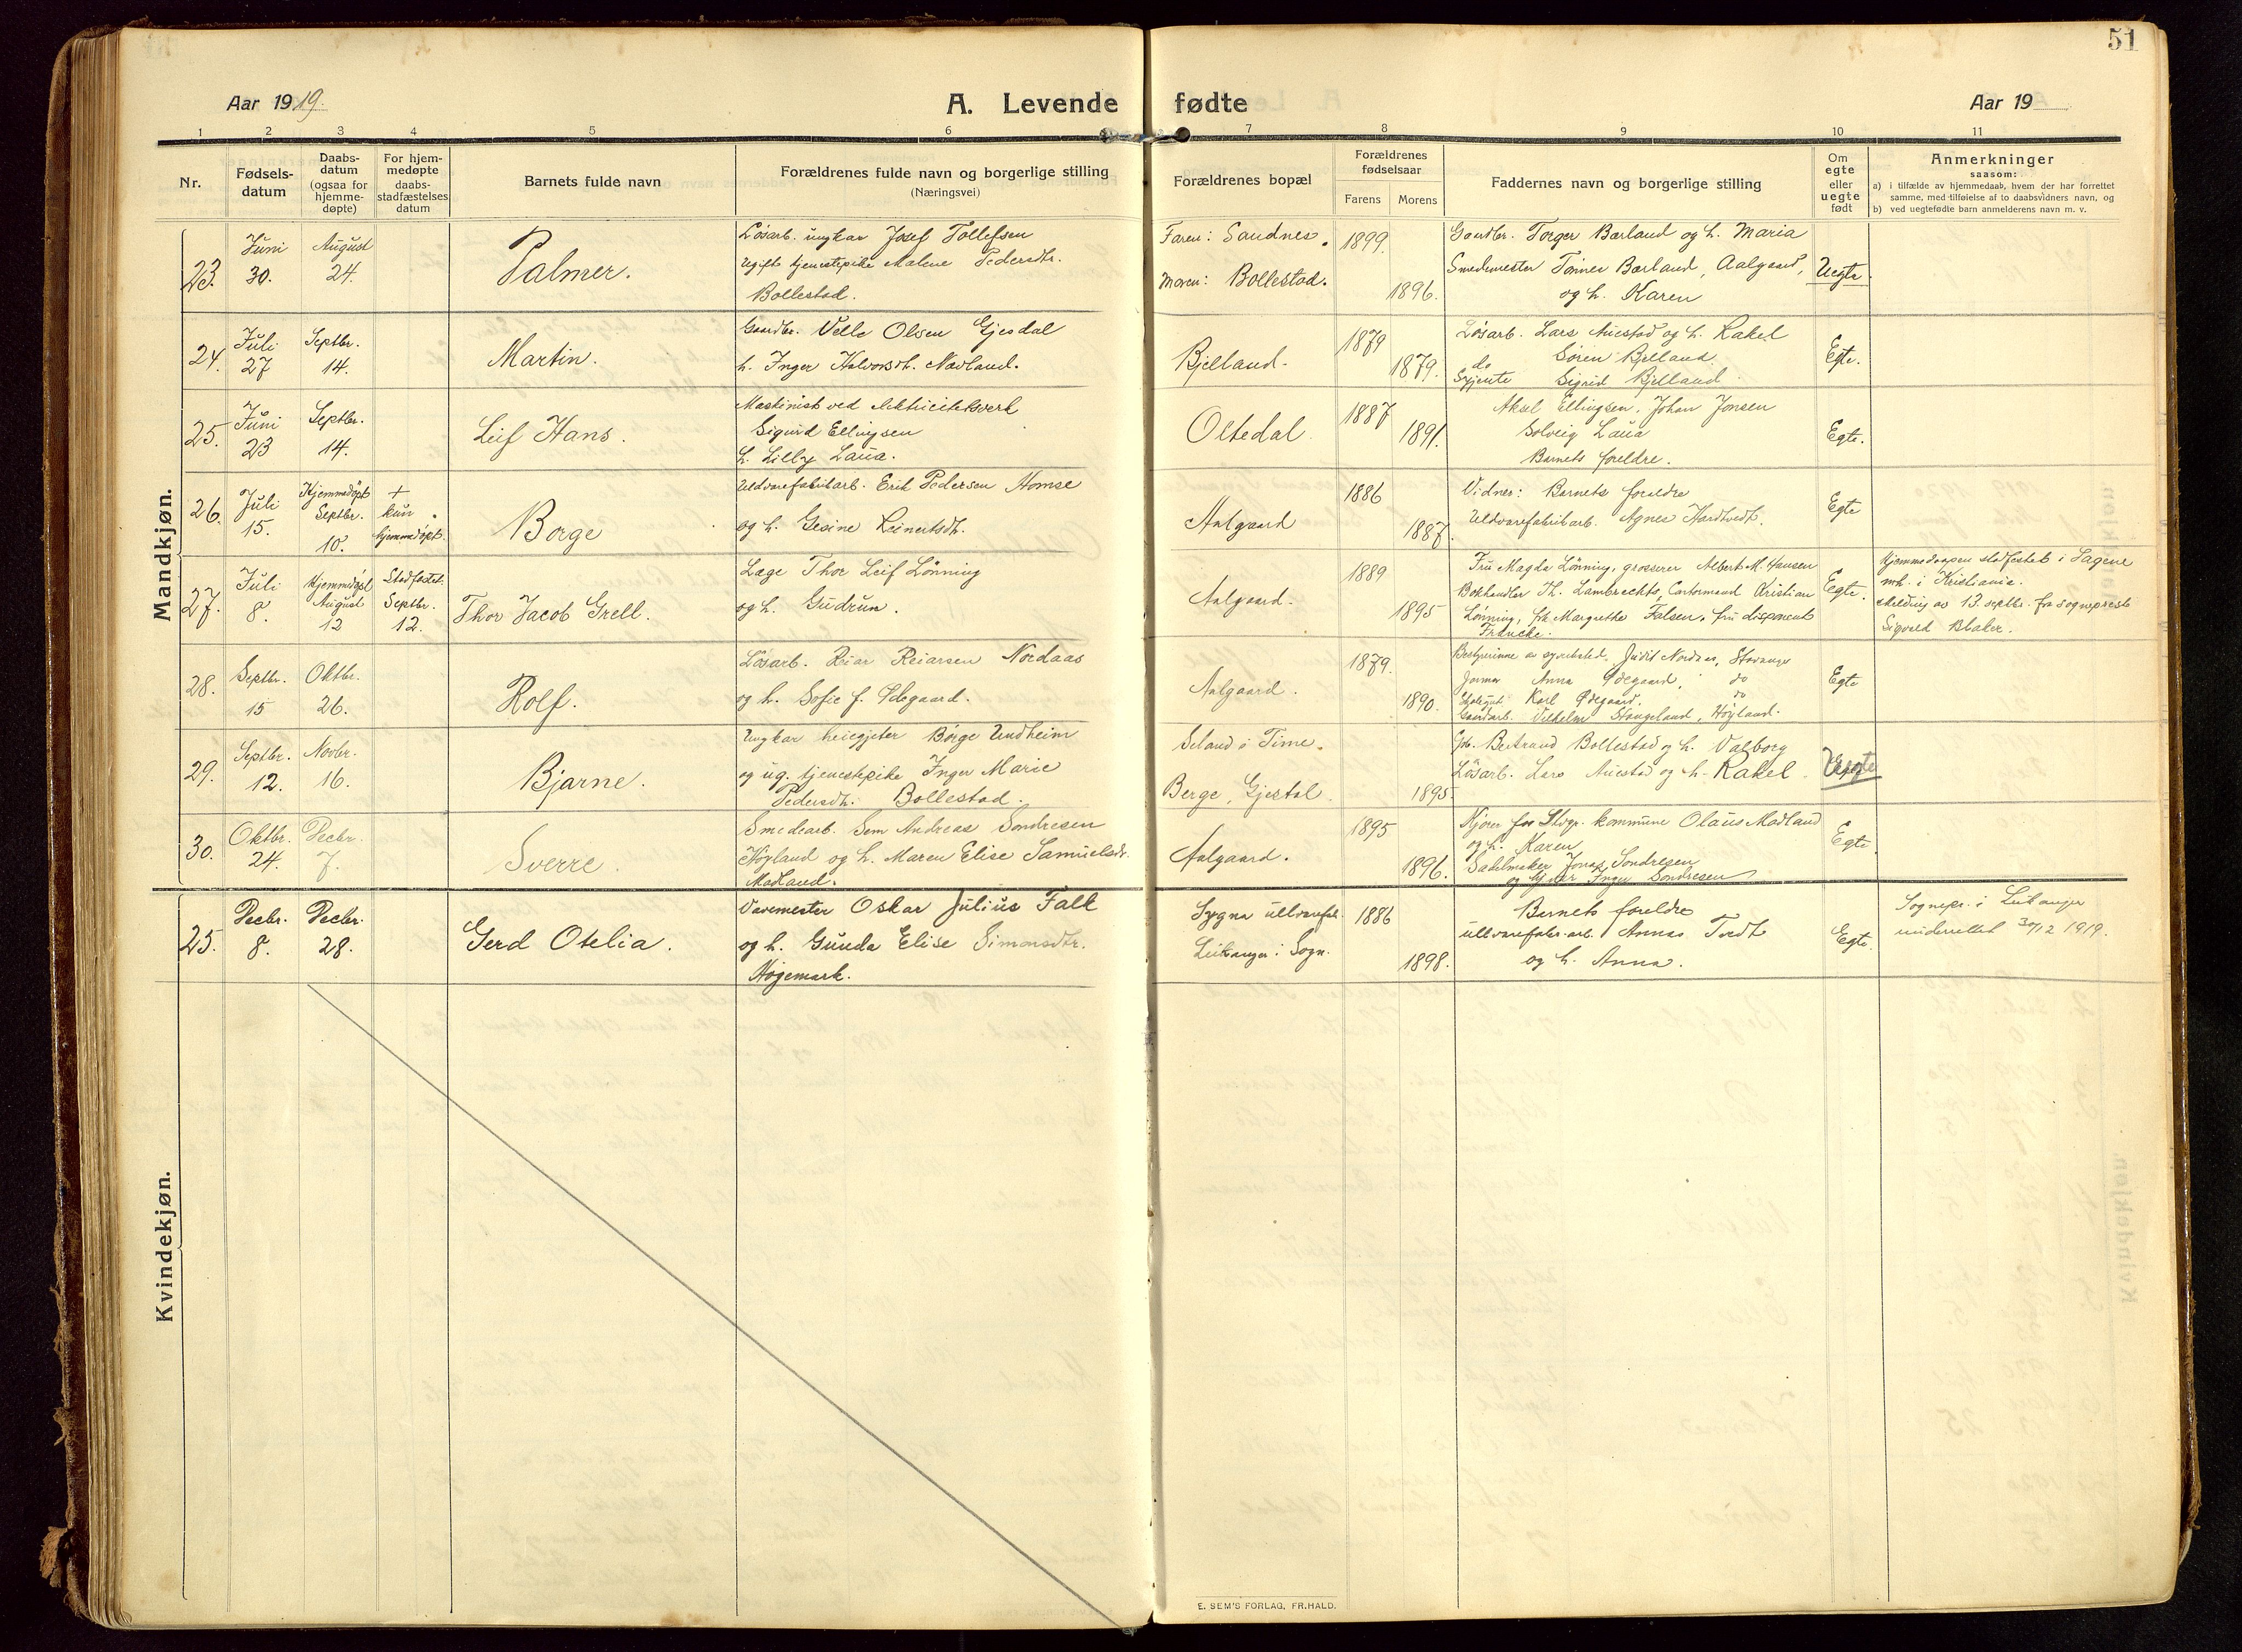 51
Aar 1919.
A. Levende fødte
Aar 19
1 2 3 4 5 6 7 8 9 10 11
Nr.
Fødsels-
datum
Daabs-
datum
(ogsaa for
hjemme-
døpte)
For hjem-
medøpte
daabs-
stadfæstelses
datum
Barnets fulde navn
Forældrenes fulde navn og borgerlige stilling
(Næringsvei)
Forældrenes bopæl
Forældrenes
fødselsaar
Farens Morens
Faddernes navn og borgerlige stilling
Om
egte
eller
uegte
født
Anmerkninger
saasom:
a) i tilfælde av hjemmedaab, hvem der har forrettet
samme, med tilføielse af to daabsvidners navn, og
b) ved uegtefødte barn anmelderens navn m. v.
Mandkjøn.
23.
Juni
30.
August
24.
Palmer.
Løsarb. ungkar Josef Tollefsen
Ugift tjenestepike Malene Pedersdtr.
Bollestad.
Faren: Sandnes.
Moren: Bollestad.
1899.
1896.
Gaardbr. Torger Bærland og h. Maria
Smedemester Tønnes Bærland, Aalgaard,
og h. Karen
Uegte.
24.
Juli
27
Septbr.
14.
Martin.
Gaardbr. Velle Olsen Gjesdal
h. Inger Halvorsdt. Nævland.
Bjelland.
1879
1879.
Løsarb. Lars Auestad og h. Rakel
do Søren Bjelland
Gjente Sigrid Bjelland
Egte.
25.
Juni
23
Septbr.
14.
Leif Hans.
Maskinist ved elektricitetsverk
Sigurd Ellingsen
h. Lilly Laua.
Oltedal
1887
1891.
Aksel Ellingsen, Johan Jonsen
Solveig Laua
Barnets foreldre.
Egte.
26.
Juli
15.
Hjemmedöpt
Septbr.
10.
+
kun
hjemmedöpt.
Borge
Uldvarefabrikarb. Erik Pedersen Homse
og h. Gesine Reinertsdt.
Aalgaard
1886
1887.
Vidner: Barnets foreldre
Uldvarefabrikarb. Agnes Hardtvedt.
Egte
27.
Juli
8.
Hjemmedöpt
August
12
Stadfestet
Septbr.
12.
Thor Jacob Grell.
Læge Thor Leif Lönning
og h. Gudrun.
Aalgaard.
1889
1895
Fru Magda Lönning, grosserer Albert M. Hansen
Bokhandler Th. Lambrechts, Cantormand Kristian
Lönning, frk Margrethe Falsen, fru disponent
Francke.
Egte.
Hjemmedaapen stadfestet i Sagene
mh. i Kristiania.
Melding av 13. septbr. fra sogneprest
Sigvald Blaker.
28.
Septbr.
15
Oktbr.
26.
Rolf.
Løsarb. Reiar Reiarsen Nordaas
og h. Sofie f. Ødegaard.
Aalgaard.
1879.
1890.
Bestyrerinne Judit Nordaas, Stavanger
Anna Ødegaard, do
Karl Ødegaard, do
Gaardarb. Vilhelm Stangeland, Høyland.
Egte
29.
Septbr.
12.
Novbr.
16.
Bjarne.
Ungkar heiegjeter Børge Undheim
og ug. tjenestepike Inger Marie
Pedersdt. Bollestad.
Seland i Time.
Berge, Gjestal.
1895
Gb. Bertrand Bollestad og h. Valborg
Løsarb. Lars Auestad og h. Rakel.
Uegte
30.
Oktbr.
24.
Decbr.
7.
Sverre.
Smedearb. Sem Andreas Sondresen
Høyland og h. Maren Elise Samuelsdr.
Madland.
Aalgaard.
1895
1896.
Kjører for Stvgr. kommune Olaus Madland
og h. Karen
Sadelmaker Jonas Sondresen
og Inger Sondresen
Egte
Kvindekjøn.
25.
Decbr.
8.
Decbr.
28.
Gerd Otelia.
Vævemester Oskar Julius Falk
og h. Gunda Elise Simonsdtr.
Høgemark.
Sygna ullvarefab.
Leikanger i Sogn.
1886
1898.
Barnets foreldre
ullvarefabr. arb. Annas Tvedt
og h. Anna.
Egte.
Sognepr. i Leikanger
underrettet 30/12 1919.
E. SEM'S FORLAG, FR.HALD.